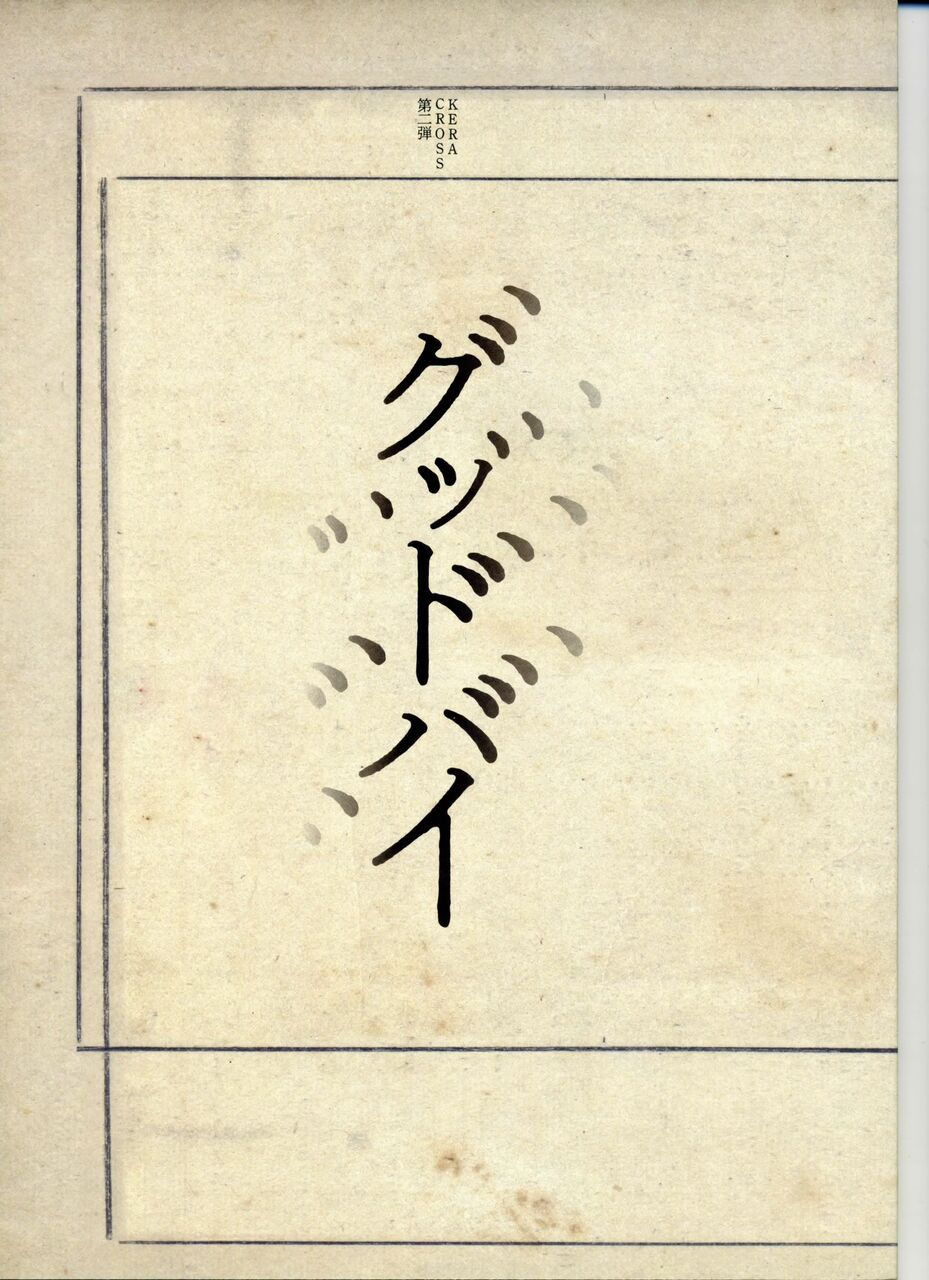 KERA
CROSS
第二弾
グッドバイ